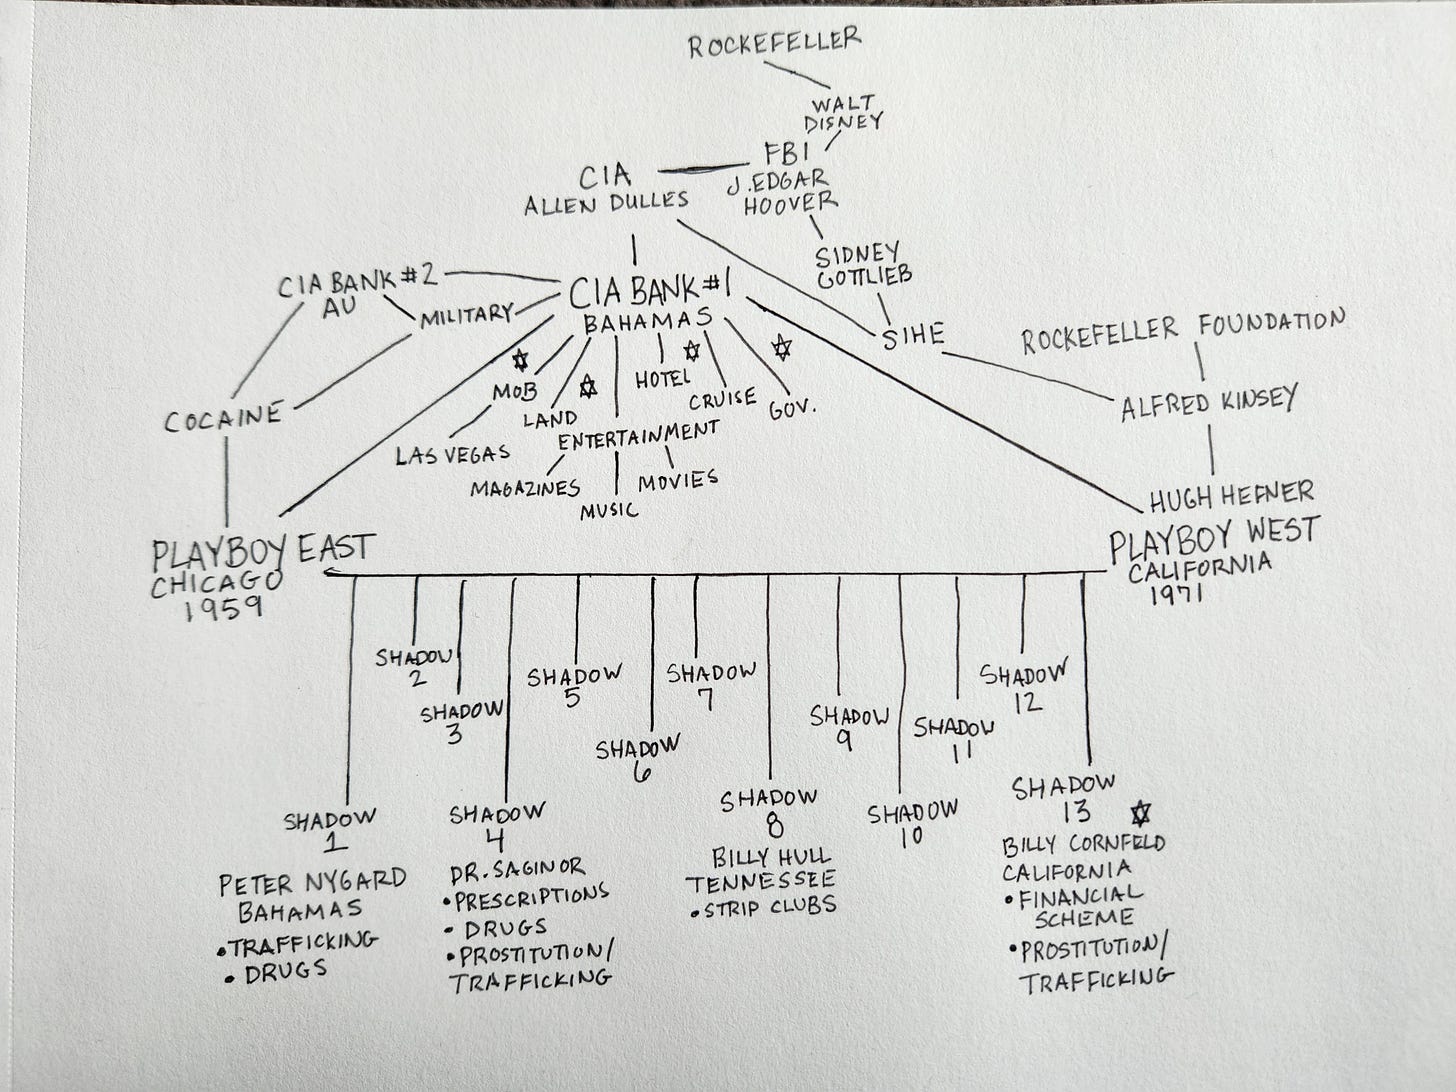 ROCKEFELLER
WALT
DISNEY
FBI
J. EDGAR
HOOVER
CIA
ALLEN DULLES
SIDNEY
GOTTLIEB
CIA BANK #2
AU
MILITARY
CIA BANK #1
BAHAMAS
SIHE
ROCKEFELLER FOUNDATION
ALFRED KINSEY
COCAINE
MOB
LAND
HOTEL
CRUISE
GOV.
LAS VEGAS
ENTERTAINMENT
MAGAZINES
MUSIC
MOVIES
HUGH HEFNER
PLAYBOY EAST
CHICAGO
1959
PLAYBOY WEST
CALIFORNIA
1971
SHADOW
2
SHADOW
3
SHADOW
5
SHADOW
6
SHADOW
7
SHADOW
9
SHADOW
11
SHADOW
12
SHADOW
1
PETER NYGARD
BAHAMAS
•TRAFFICKING
• DRUGS
SHADOW
4
DR. SAGINOR
•PRESCRIPTIONS
• DRUGS
•PROSTITUTION/
TRAFFICKING
SHADOW
8
BILLY HULL
TENNESSEE
•STRIP CLUBS
SHADOW
10
SHADOW
13
BILLY CORNFELD
CALIFORNIA
•FINANCIAL
SCHEME
•PROSTITUTION/
TRAFFICKING